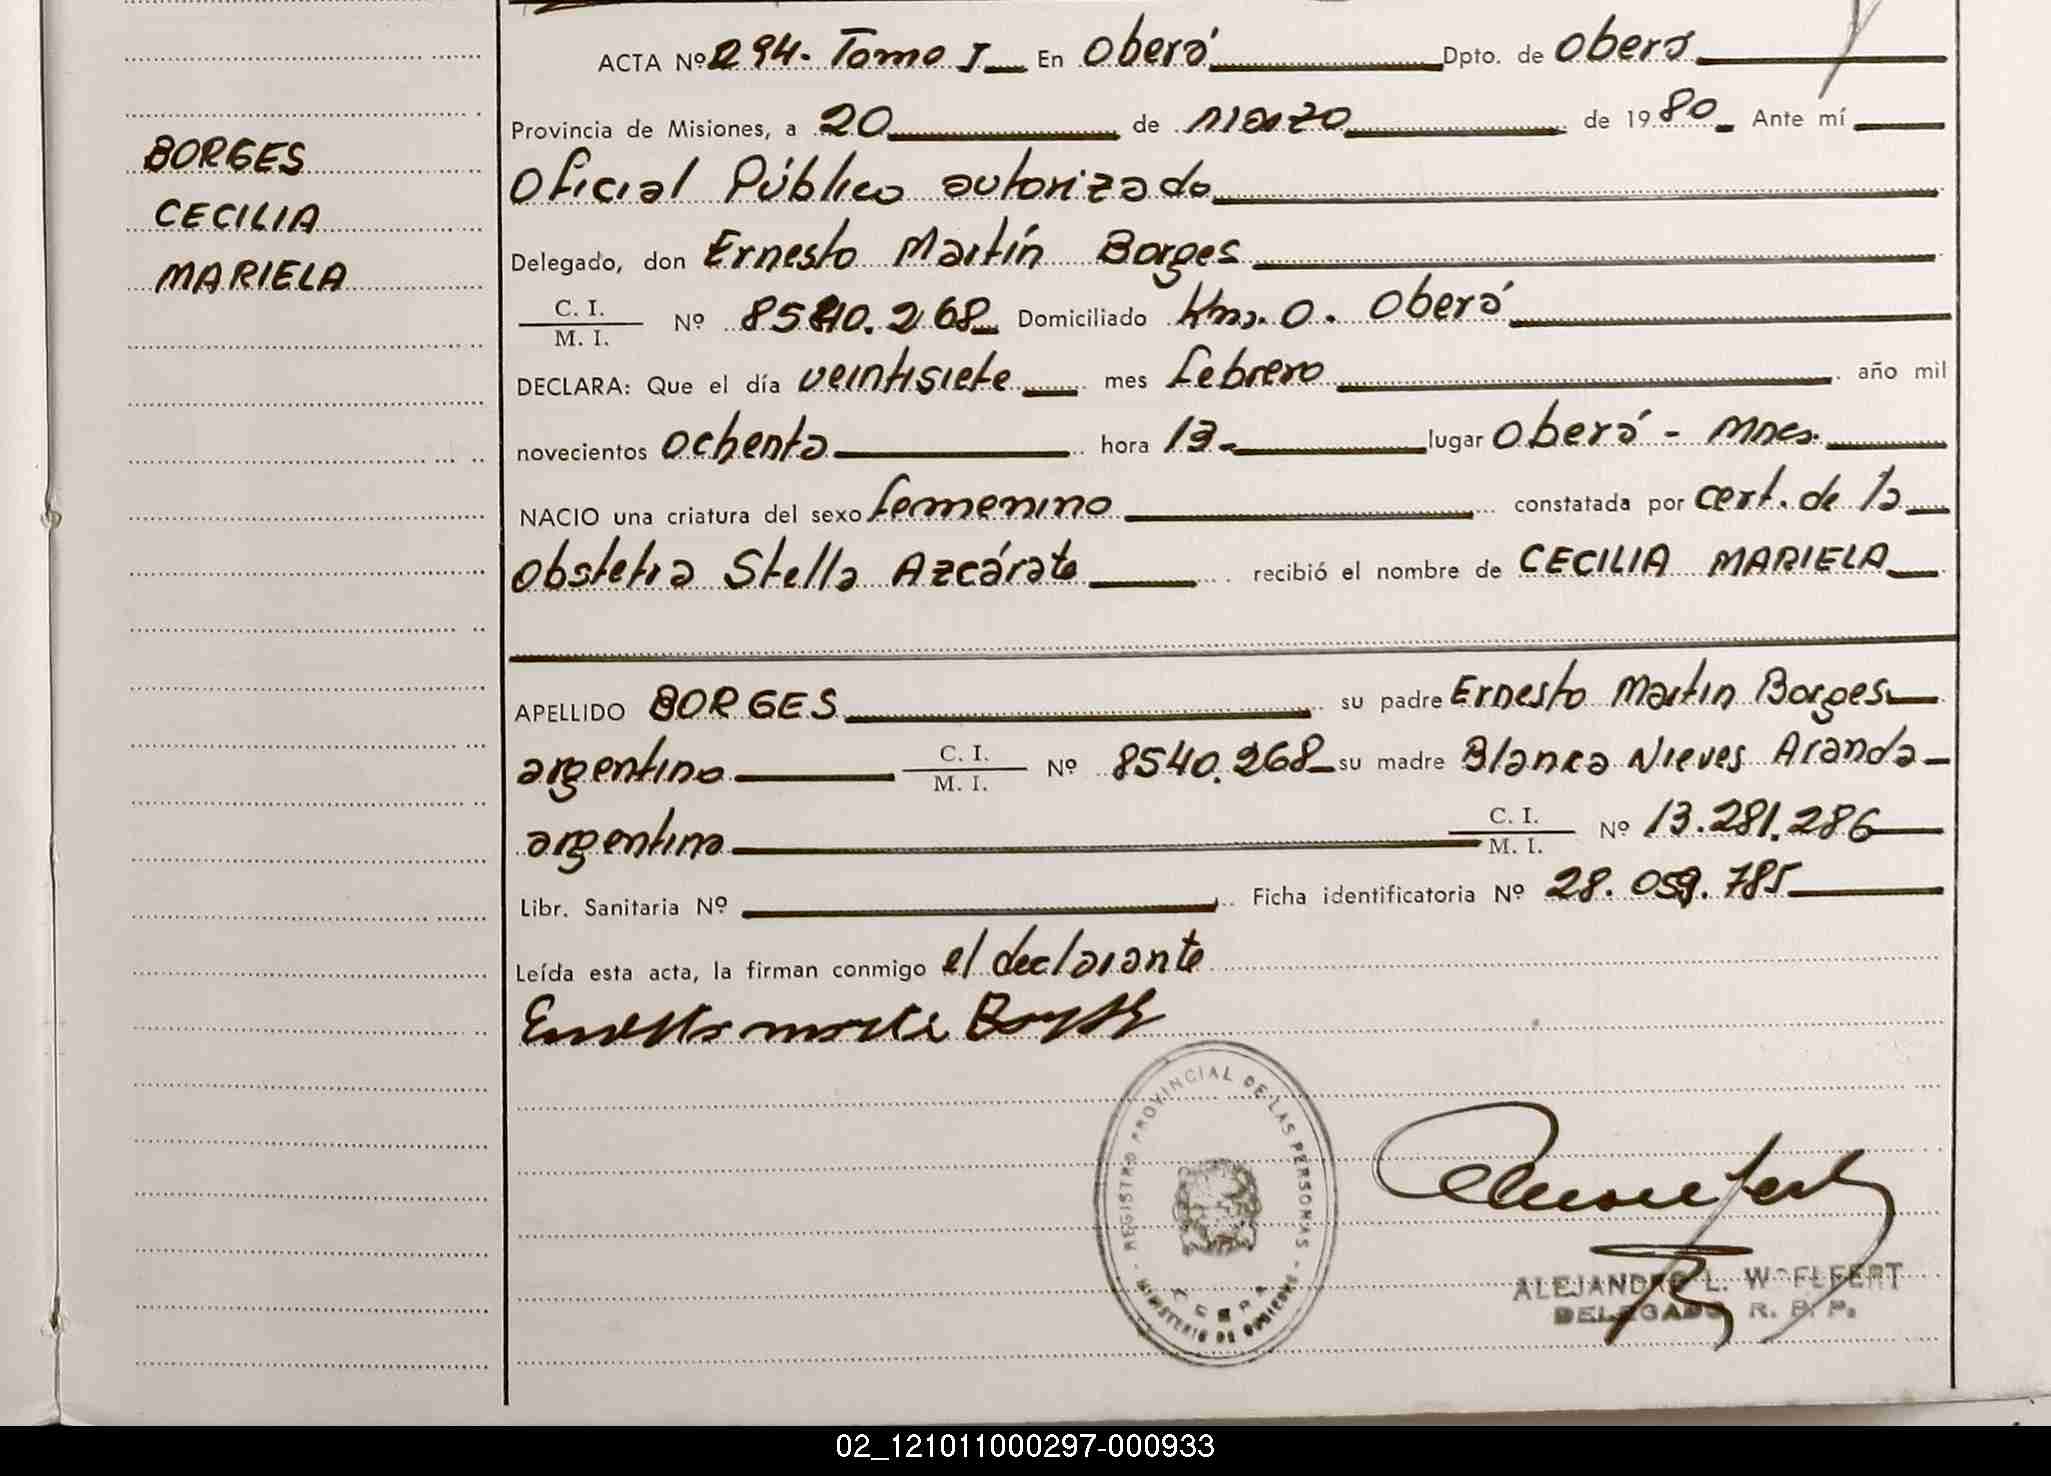 ACTA Nº 294. Tomo I En Oberá Dpto. de Oberá
Provincia de Misiones, a 20 de marzo de 1980 Ante mí
BORGES
CECILIA
MARIELA
Oficial Público autorizado
Delegado, don Ernesto Martín Borges
C. I.
M. I.
Nº 8540.268 Domiciliado Km. 0. Oberá
DECLARA: Que el día veintisiete mes febrero año mil
novecientos ochenta hora 13. lugar Oberá - Mnes.
NACIO una criatura del sexo femenino constatada por cert. de la
Obstetra Stella Azcárate recibió el nombre de CECILIA MARIELA
APELLIDO BORGES su padre Ernesto Martin Borges
argentino C. I. M. I. Nº 8540.268 su madre Blanca Nieves Aranda
argentina C. I. M. I. Nº 13.281.286
Libr. Sanitaria Nº Ficha identificatoria Nº 28.059.785
Leída esta acta, la firman conmigo el declarante
REGISTRO PROVINCIAL DE LAS PERSONAS
MINISTERIO DE GOBIERNO
ALEJANDRO L. WOELFERT
DELEGADO R. P. P.
02_121011000297-000933